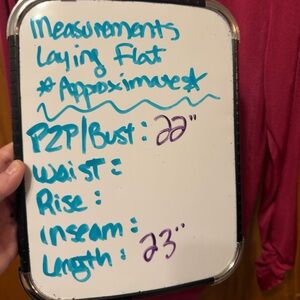 Measurements
Laying Flat
*Approximate*
P2P/Bust: 22"
Waist:
Rise:
Inseam:
Length: 23"